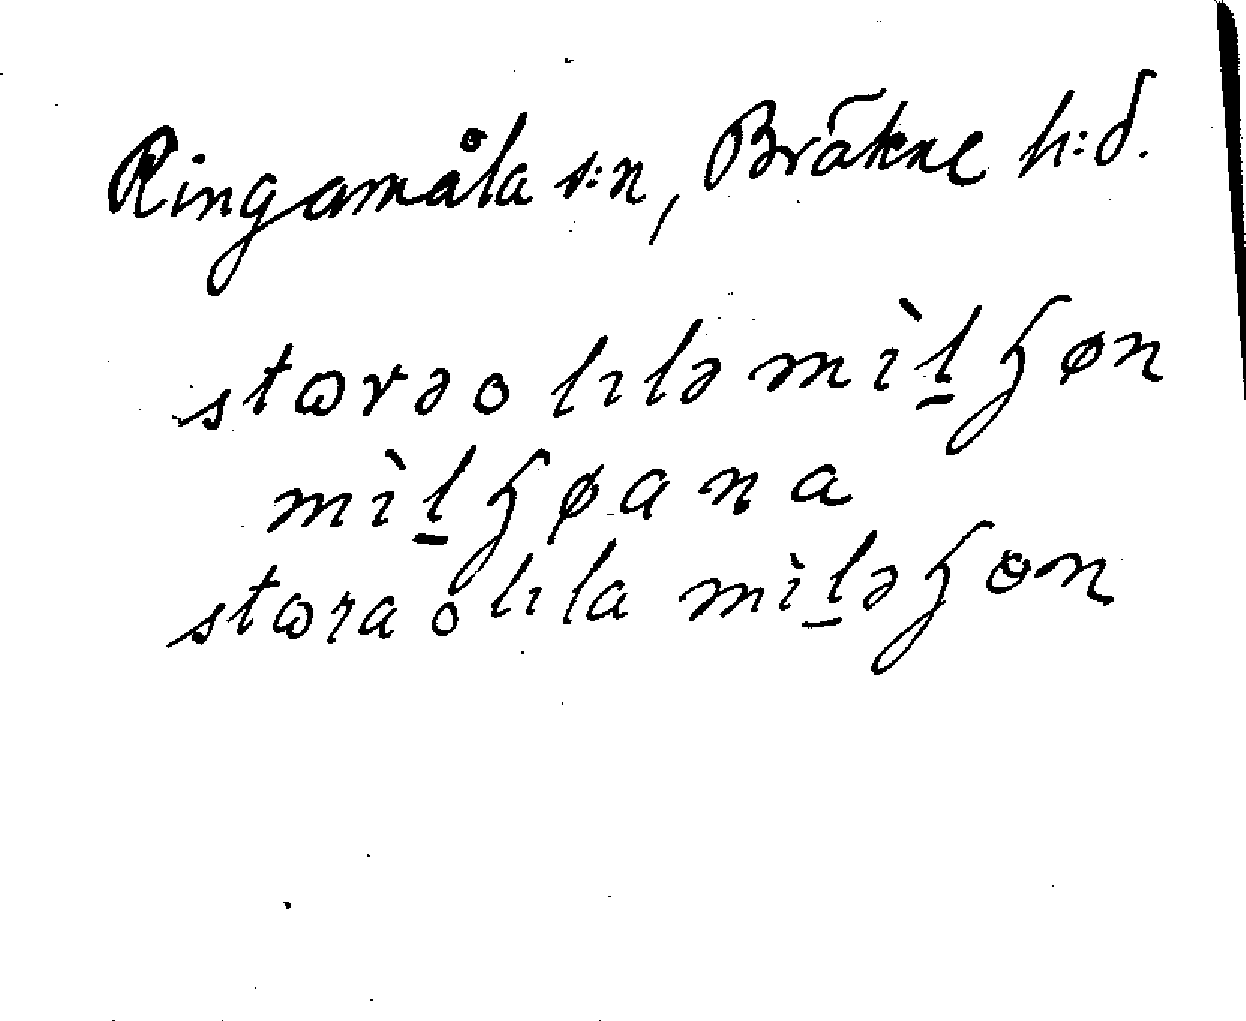 Ringamåla s:n, Bräkne h:d.
stɷrəo lılə mìḻʒøn
mìḻʒøana
stɷra o lıla mìḻəʒɵn